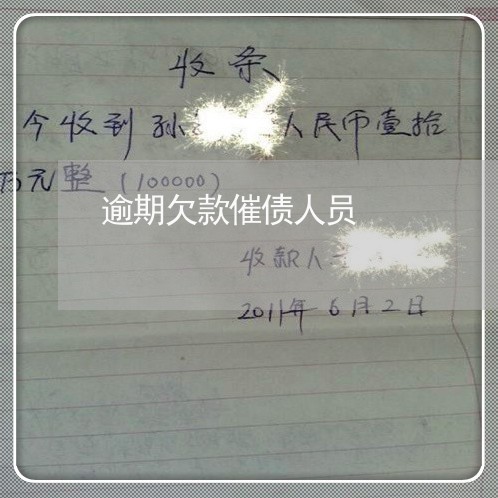 收条
今收到孙 人民币壹拾
万元整（100000）
逾期欠款催债人员
收款人
2011年6月2日